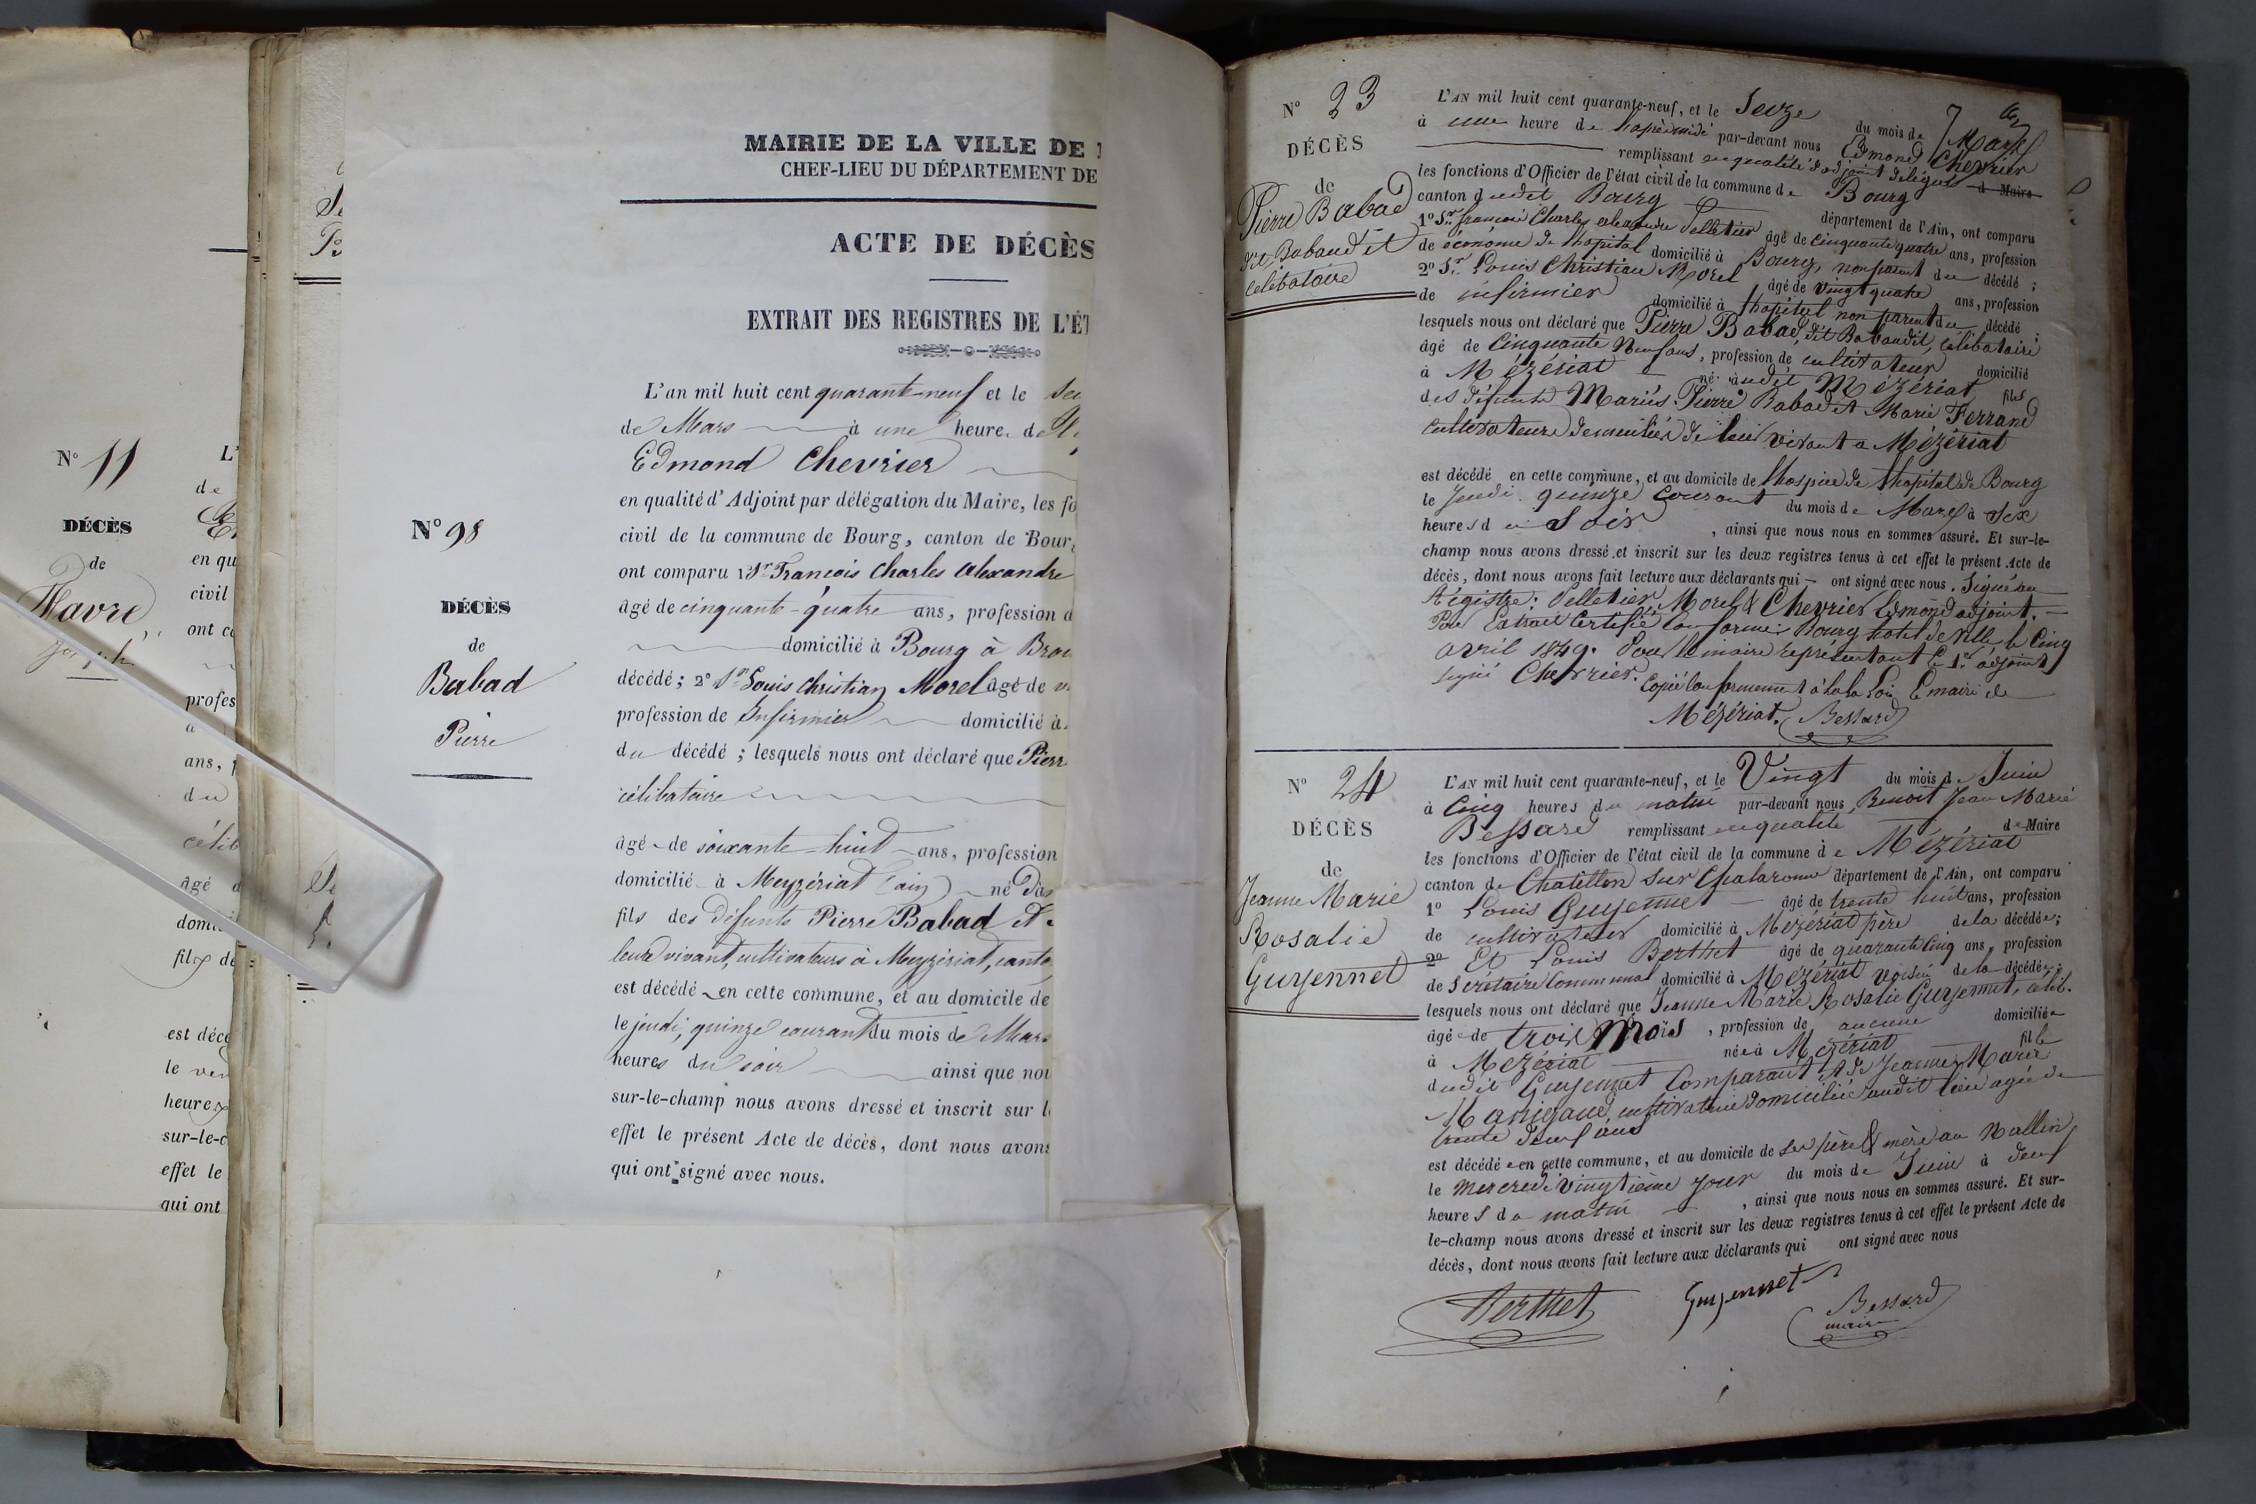 N° 11
DÉCÈS
de
Favre
Joseph
L'
de
en qu
civil
ont co
profes
a
ans, p
du
célib
âgé d
domic
fils de
est décé
le ven
heures
sur-le-c
effet le
qui ont
MAIRIE DE LA VILLE DE
CHEF-LIEU DU DÉPARTEMENT DE
ACTE DE DÉCÈS
EXTRAIT DES REGISTRES DE L'ÉT
N° 98
DÉCÈS
de
Babad
Pierre
L'an mil huit cent quarante-neuf et le sei
de Mars à une heure de
Edmond Chevrier
en qualité d'Adjoint par délégation du Maire, les fo
civil de la commune de Bourg, canton de Bour
ont comparu 1° Sr François Charles Alexandre
âgé de cinquante-quatre ans, profession d
domicilié à Bourg à Brou
décédé; 2° Sr Louis Christian Morel âgé de
profession de Infirmier domicilié à
du décédé; lesquels nous ont déclaré que Pierr
célibataire
âgé de soixante-huit ans, profession
domicilié à Meyzériat (ain) né
fils des défunts Pierre Babad et
leurs vivant, cultivateurs à Meyzériat, canto
est décédé en cette commune, et au domicile de
le jeudi, quinze courant du mois de Mars
heures du soir ainsi que nou
sur-le-champ nous avons dressé et inscrit sur l
effet le présent Acte de décès, dont nous avons
qui ont signé avec nous.
N° 23
DÉCÈS
de
Pierre Babad
dit Babaudit
célibataire
L'AN mil huit cent quarante-neuf, et le Seize du mois de Mars
à une heure de l'après midi par-devant nous Edmond Chevrier
remplissant en qualité d'adjoint délégué d Maire
les fonctions d'Officier de l'état civil de la commune de Bourg
canton dudit Bourg département de l'Ain, ont comparu
1° Sr françois Charles alexandre Pelletier âgé de cinquante quatre ans, profession
de économe de l'hopital domicilié à Bourg, non parent du décédé;
2° Sr Louis Christian Morel âgé de vingt quatre ans, profession
de infirmier domicilié à l'hopital non parent du décédé
lesquels nous ont déclaré que Pierre Babad, dit Babaudit, célibataire
âgé de Cinquante Neuf ans, profession de cultivateur domicilié
à Mézériat né audit Mézériat fils
des défunts Mariés Pierre Babad et Marie Ferrand
cultivateurs domiciliés de leur vivant a Mézériat
est décédé en cette commune, et au domicile de l'hospice de l'hopital de Bourg
le Jeudi quinze Courant du mois de Mars à Six
heures du Soir, ainsi que nous nous en sommes assuré. Et sur-le-
champ nous avons dressé et inscrit sur les deux registres tenus à cet effet le présent Acte de
décès, dont nous avons fait lecture aux déclarants qui ont signé avec nous. Signé au
Régistre: Pelletier, Morel & Chevrier Edmond adjoint.
Pour Extrait Certifié Conforme Bourg hotel de Ville le Cinq
avril 1849. Pour le maire représentant le 1er adjoint
signé Chevrier. Copié Conformement à la Loi Le maire de
Mézériat. Bessard
N° 24
DÉCÈS
de
Jeanne Marie
Rosalie
Guyennet
L'AN mil huit cent quarante-neuf, et le Vingt du mois de Juin
à Cinq heures du matin par-devant nous Benoit Jean Marie
Bessard remplissant en qualité de Maire
les fonctions d'Officier de l'état civil de la commune de Mézériat
canton de Chatillon sur Chalaronne département de l'Ain, ont comparu
1° Louis Guyennet âgé de trente huit ans, profession
de cultivateur domicilié à Mézériat père de la décédée;
2° Et Louis Berthet âgé de quarante Cinq ans, profession
de Sécrétaire Communal domicilié à Mézériat voisin de la décédée;
lesquels nous ont déclaré que Jeanne Marie Rosalie Guyennet, célib.
âgée de trois Mois, profession de aucune domiciliée
à Mézériat née à Mézériat fille
dudit Guyennet Comparant et de Jeanne Marie
Manigaud, cultivatrice domiciliée audit lieu agée de
trente deux ans
est décédée en cette commune, et au domicile de ses père & mère au Mallin
le Mercredi vingtième jour du mois de Juin à deux
heures du matin, ainsi que nous nous en sommes assuré. Et sur-
le-champ nous avons dressé et inscrit sur les deux registres tenus à cet effet le présent Acte de
décès, dont nous avons fait lecture aux déclarants qui ont signé avec nous
Berthet Guyennet Bessard
maire